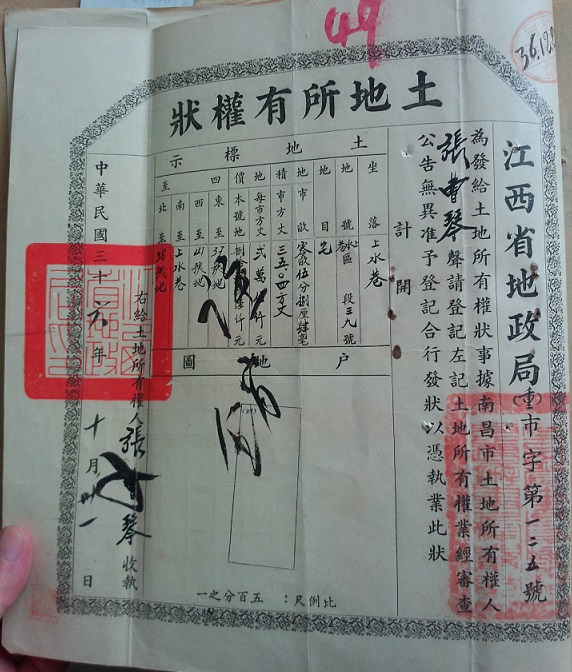 49
36.12.2
土地所有權狀
江西省地政局(〇)市字第一二五號
為發給土地所有權狀事據南昌市土地所有權人
張曹琴聲請登記左記土地所有權業經審查
公告無異准予登記合行發狀以憑執業此狀
計開
土地標示
坐落 上水巷
地號 區 段三九號
地目 宅
地市畝 分捌厘肆毫
積市方丈 三五.〇四方丈
地每市方丈 弍萬 仟元
價本號地 仟元
四東至 37號地
西至 41號地
南至 上水巷
至北至 38號地
戶地圖
比例尺:五百分之一
右給土地所有權人張曹琴收執
中華民國三十六年十月廿一日